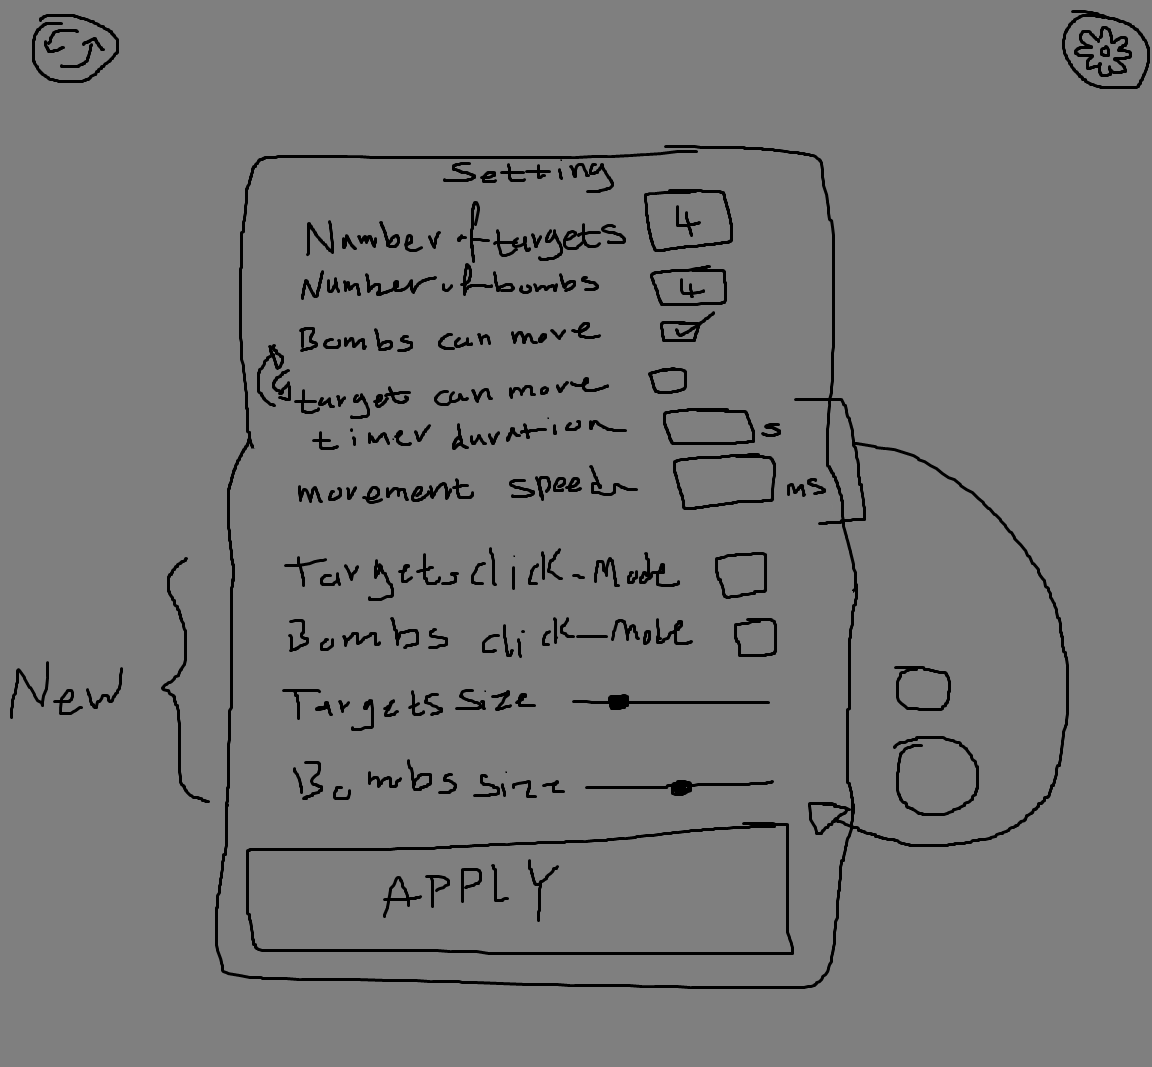 Setting
Number of targets 4
Number of bombs 4
Bombs can move
target can move
timer duration s
movement speed ms
Targets click-Mode
Bombs click-Mode
New
Targets size
Bombs size
APPLY